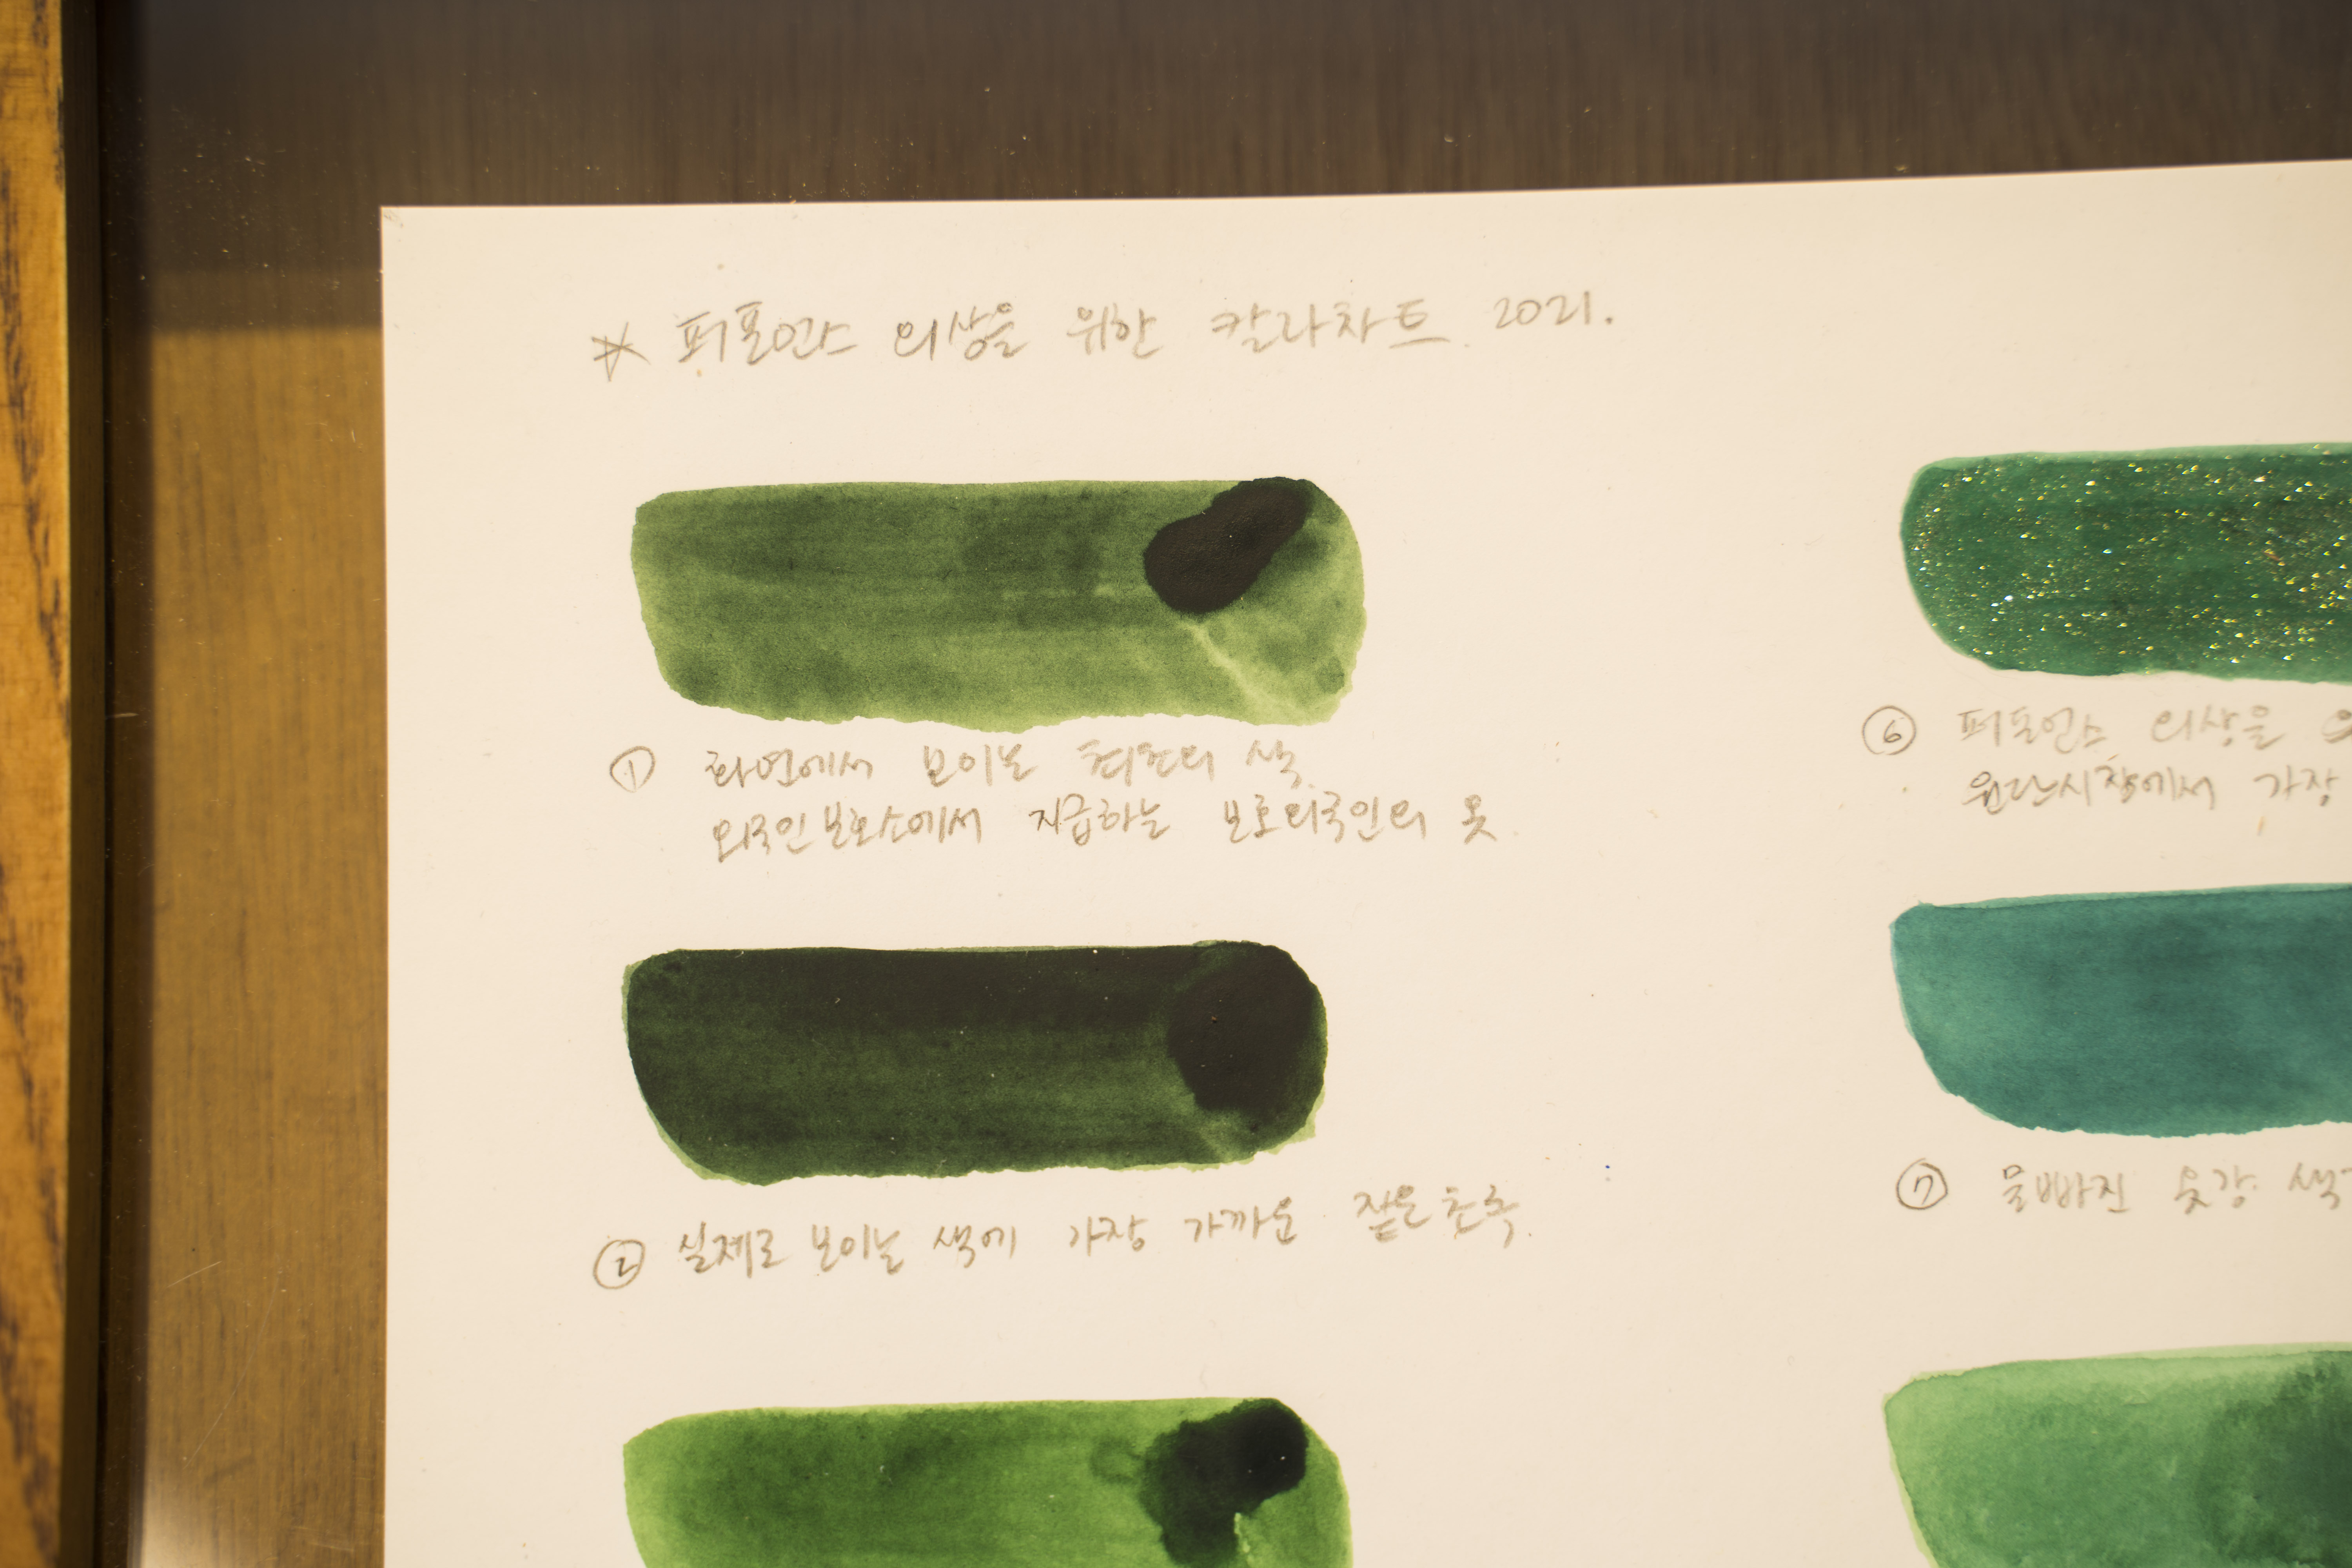 ※ 퍼포먼스 의상을 위한 칼라차트. 2021.
① 화면에서 보이는 최초의 색.
외국인보호소에서 지급하는 보호외국인의 옷
② 실제로 보이는 색에 가장 가까운 짙은초록.
⑥ 퍼포먼스 의상을
원단시장에서 가장
⑦ 물빠진 옷감 색